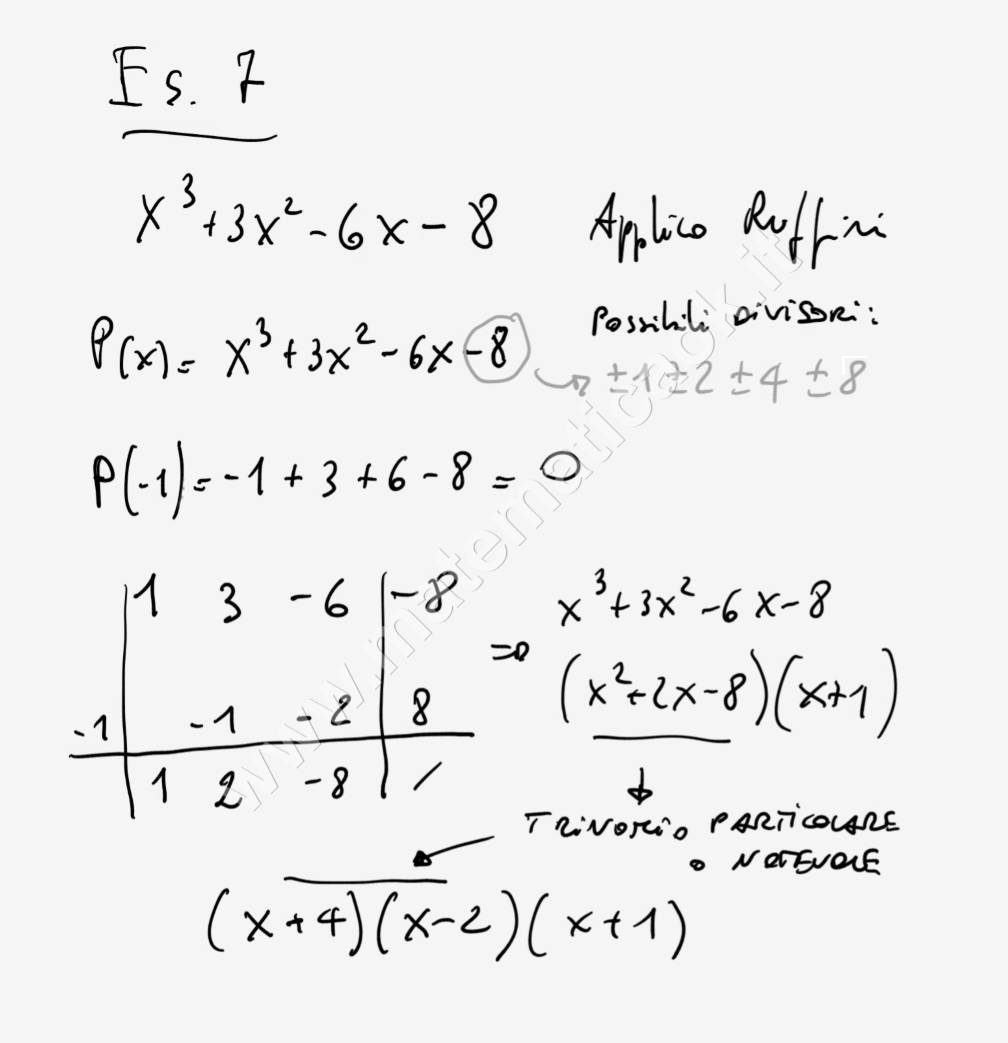 Es. 7
x³+3x²-6x-8 Applico Ruffini
P(x)= x³+3x²-6x-8 Possibili divisori:
±1 ±2 ±4 ±8
P(-1)=-1+3+6-8=0
1 3 -6 -8
-1 -1 -2 8
1 2 -8 /
=> x³+3x²-6x-8
(x²+2x-8)(x+1)
↓
TRINOMIO PARTICOLARE
o NOTEVOLE
(x+4)(x-2)(x+1)
www.matematicaok.it